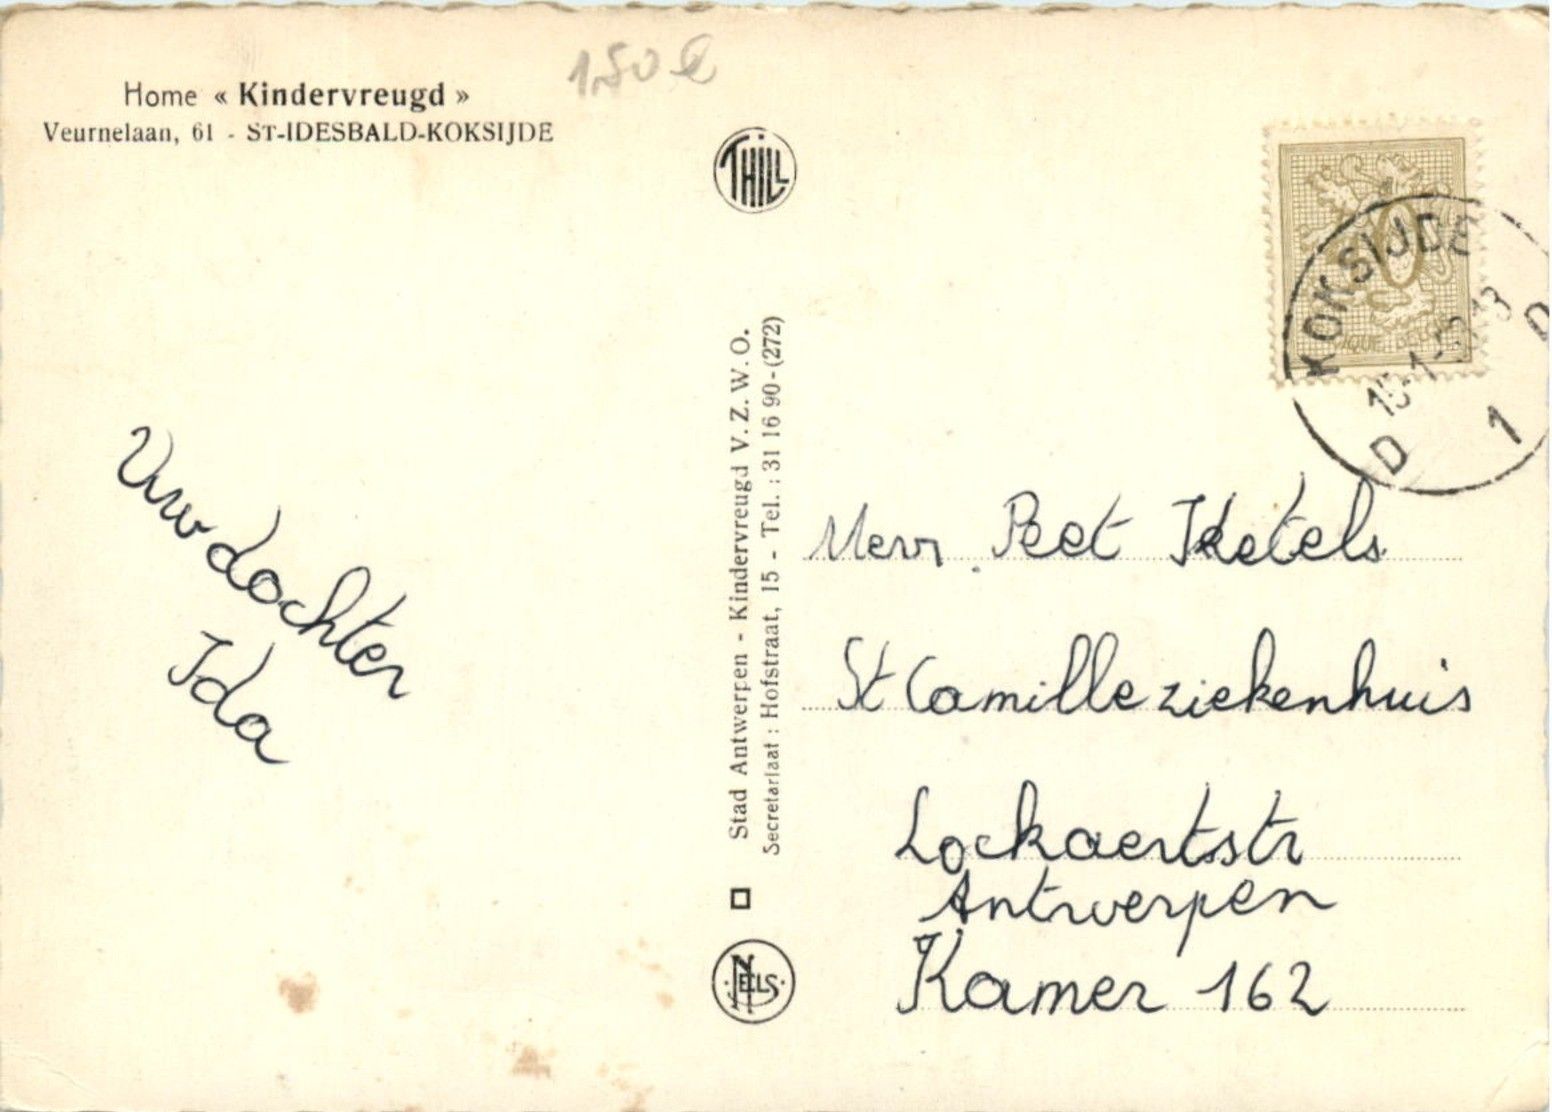 Home « Kindervreugd »
Veurnelaan, 61 - ST-IDESBALD-KOKSIJDE
150 €
THILL
KOKSIJDE
D 1 D
Stad Antwerpen - Kindervreugd V. Z. W. O.
Secretariaat : Hofstraat, 15 - Tel. : 31 16 90 - (272)
NELS
Uw dochter
Ida
Peet Ketels
St Camille ziekenhuis
Lockaertstr
Antwerpen
Kamer 162